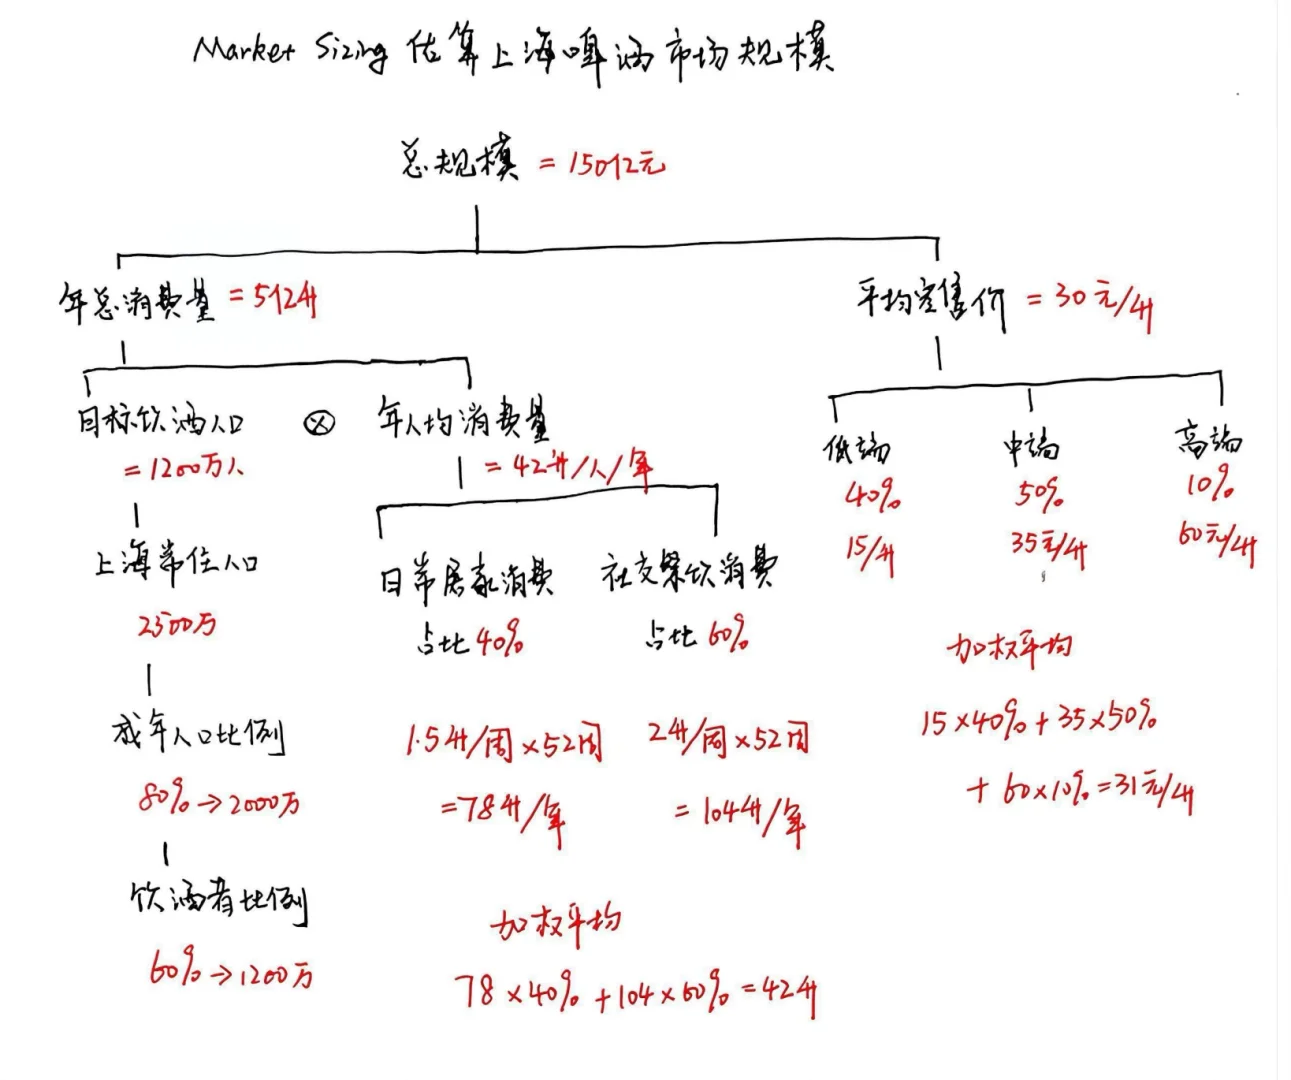 Market Sizing 估算上海啤酒市场规模
总规模 = 150亿元
年总消费量 = 5亿升
平均零售价 = 30元/升
目标饮酒人口 ⊗ 年人均消费量
= 1200万人
= 42升/人/年
低端 中端 高端
40% 50% 10%
15/升 35元/升 60元/升
上海常住人口
2500万
日常居家消费 社交聚饮消费
占比 40% 占比 60%
成年人口比例
80% → 2000万
1.5升/周 × 52周
= 78升/年
2升/周 × 52周
= 104升/年
饮酒者比例
60% → 1200万
加权平均
78 × 40% + 104 × 60% = 42升
加权平均
15 × 40% + 35 × 50%
+ 60 × 10% = 31元/升